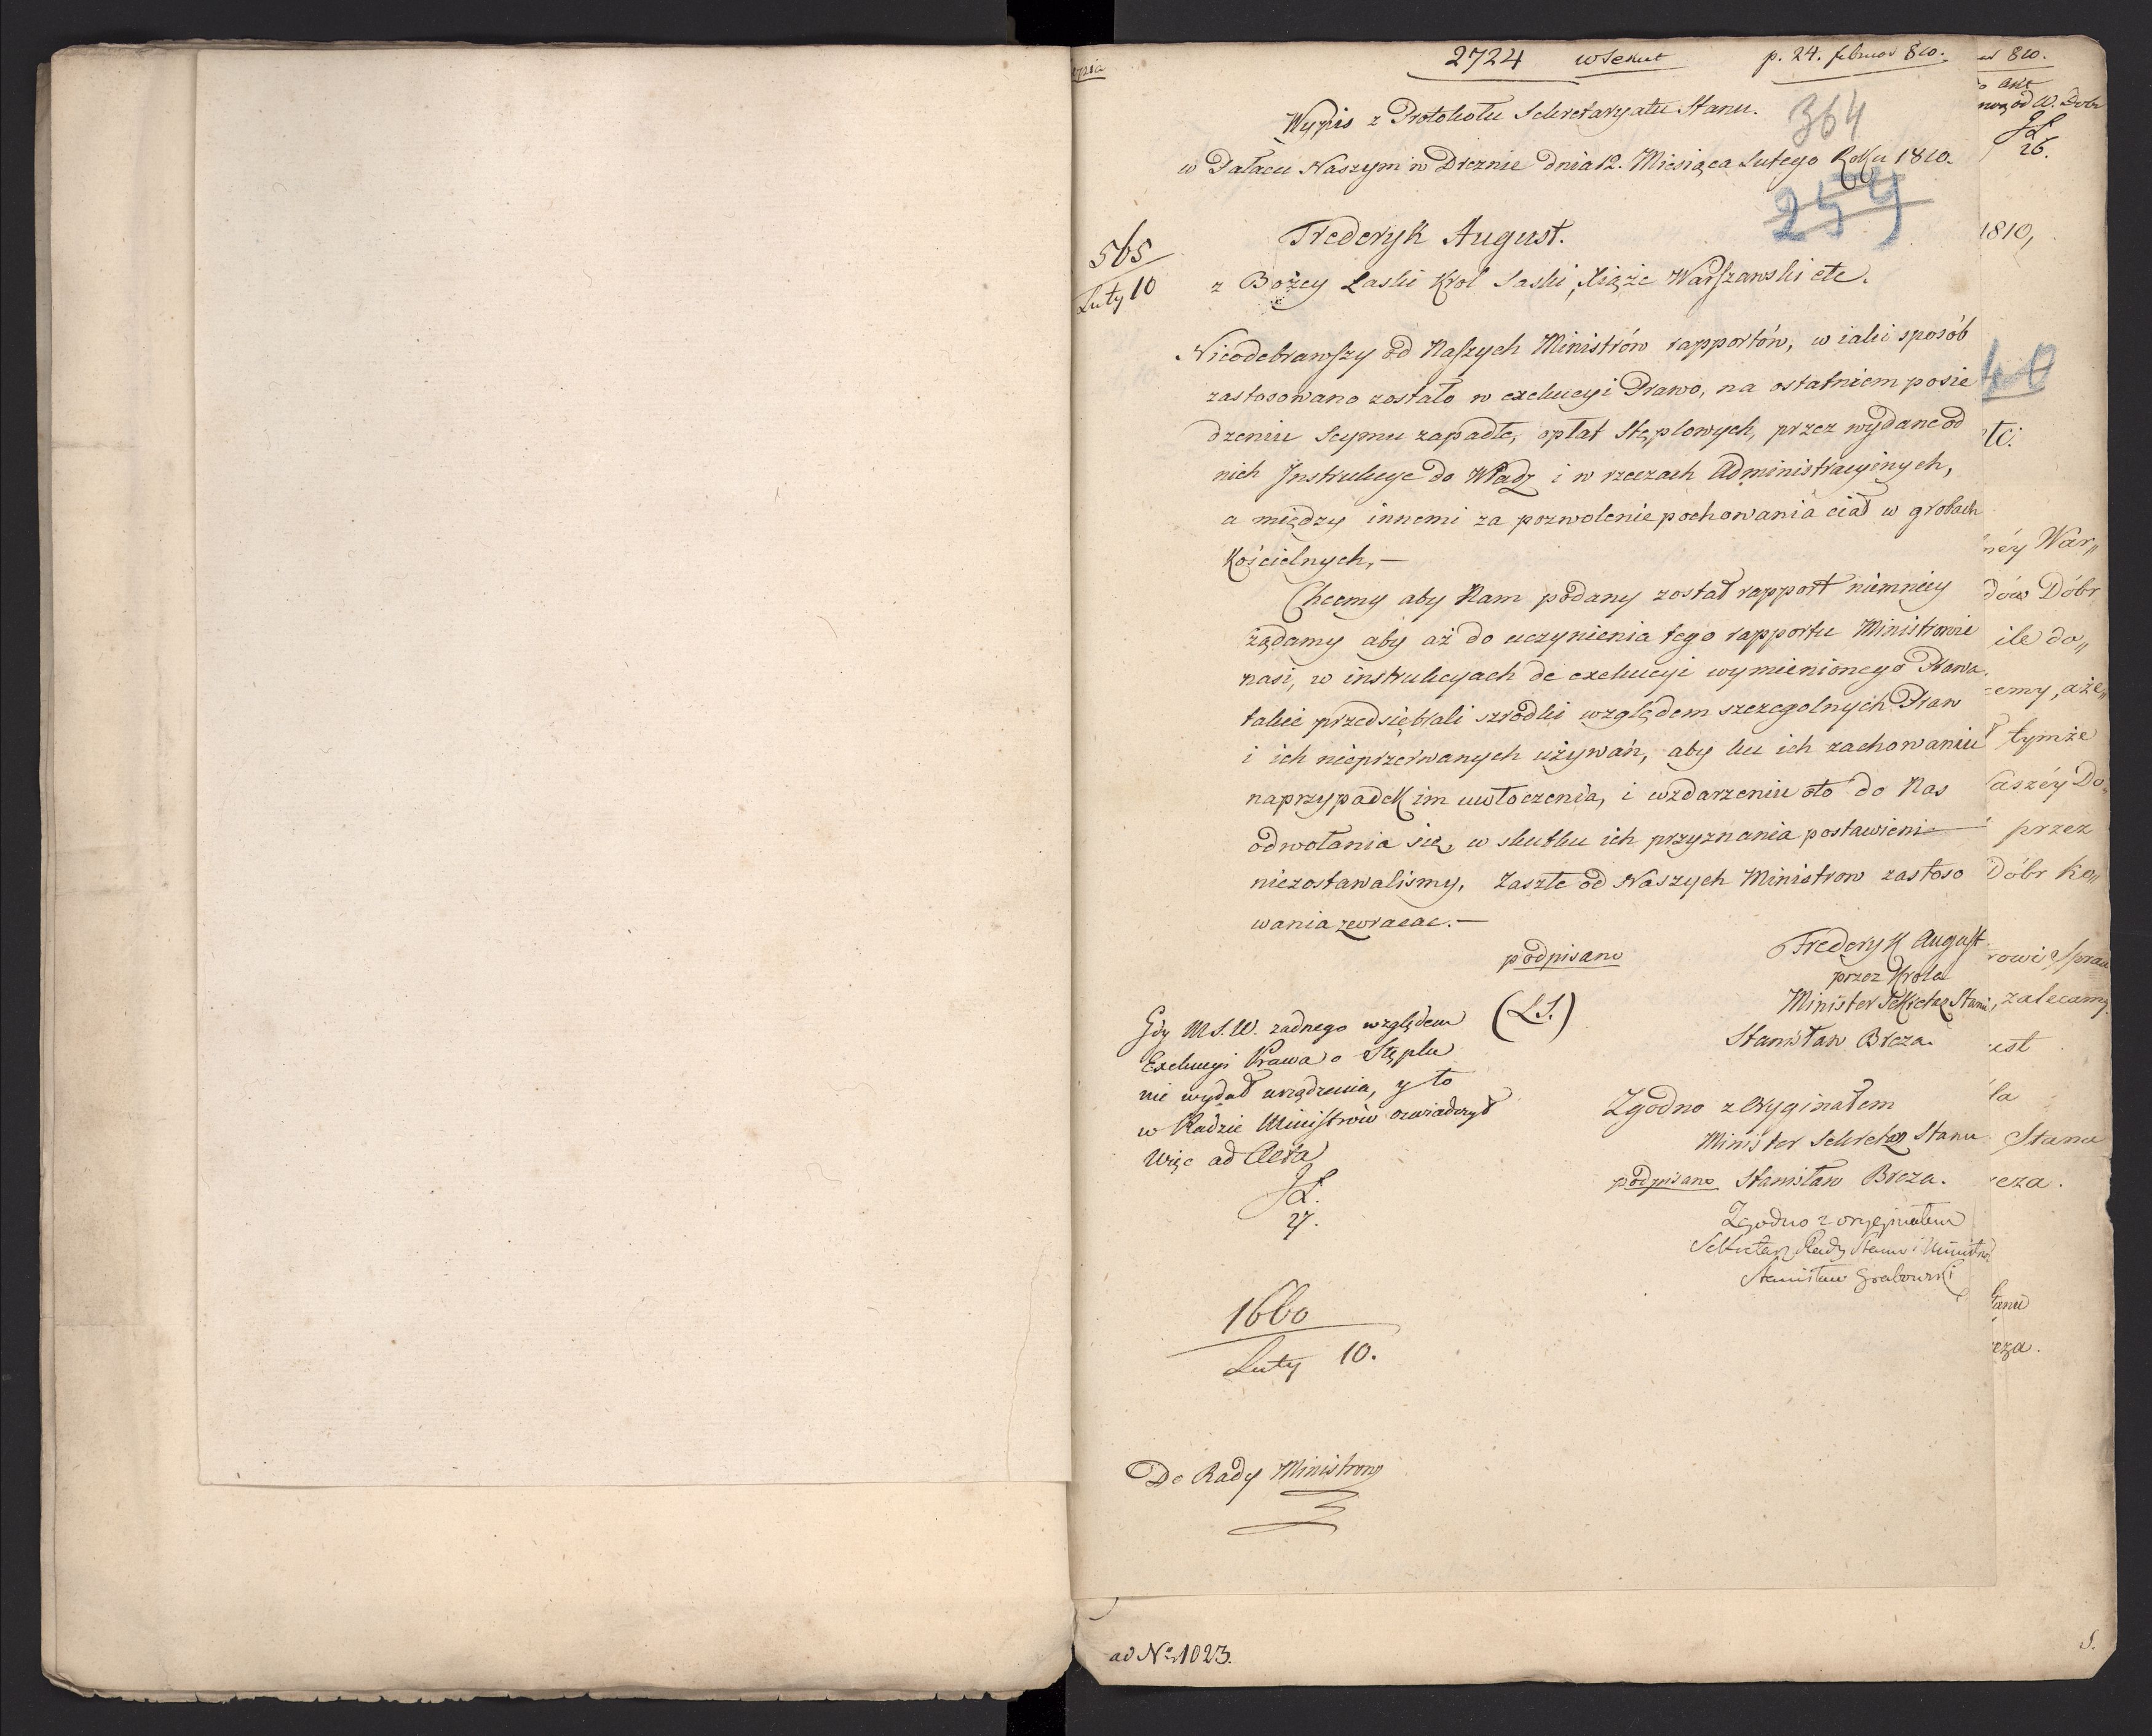 2724 wSekret p. 24. februar 810.
Wypis z Protokołu Sekretaryatu Stanu.
364
w Pałacu Naszym w Dreznie dnia 12. Miesiąca Lutego Roku 1810.
259
565
Luty 10
Frederyk August.
z Bożey Łaski Krol Saski, Xiąże Warszawski etc.
Nieodebrawszy od Naszych Ministrów rapportów, w iaki sposób
zastosowano zostało w exekucyi Prawo, na ostatniem posie
dzeniu Seymu zapadłe, opłat Stęplowych, przez wydane od
nich Instrukcye do Władz i w rzeczach Administracyinych,
a między innemi za pozwolenie pochowania ciał w grobach
Kościelnych, —
Chcemy aby Nam podany został rapport niemniey
żądamy aby aż do uczynienia tego rapportu Ministrowie
nasi, w instrukcyach do exekucyi wymienionego Prawa,
takie przedsiębrali szrodki względem szczegolnych Praw
i ich nieprzerwanych używań, aby ku ich zachowaniu
naprzypadek im uwłoczenia, i wzdarzeniu oto do Nas
odwołania się, w skutku ich przyznania postawieni
niezostawaliśmy, Zaszłe od Naszych Ministrow zastoso
wania zwracac. —
podpisano Frederyk August
przez Krola
(L.S.) Minister Sekretarz Stanu,
Stanisław Breza.
Gdy M.S.W. zadnego względem
Exekucyi Prawa o Stęplu
nie wydał urządzenia, y to
w Radzie Ministrów oswiadczył
Więc ad Acta
JŁ.
27.
Zgodno z Oryginałem
Minister Sekretarz Stanu
podpisano Stanisław Breza.
Zgodno z oryginałem
Sekretarz Rady Stanu i Ministrów
Stanisław Grabowski
1660
Luty 10.
Do Rady Ministrow
ad No. 1023.
810.
od W. Dobr
JŁ
26.
1810,
40
etc.
néy War„
dów Dóbr
ile do„
cemy, aże„
tymże
aszéy Do„
przez
Dóbr Ko„
rowi Spraw
zalecamy.
ust
la
Stanu
eza.
tanu
eza.
5.